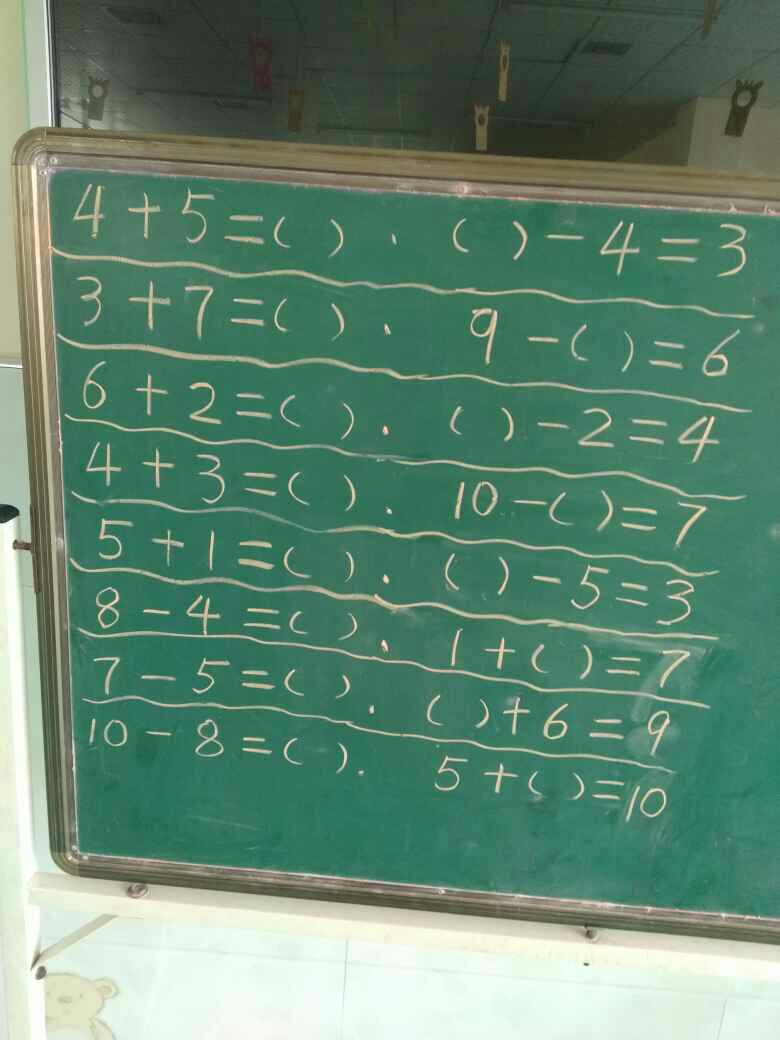 4+5=( ). ( )-4=3
3+7=( ). 9-( )=6
6+2=( ). ( )-2=4
4+3=( ). 10-( )=7
5+1=( ). ( )-5=3
8-4=( ). 1+( )=7
7-5=( ). ( )+6=9
10-8=( ). 5+( )=10